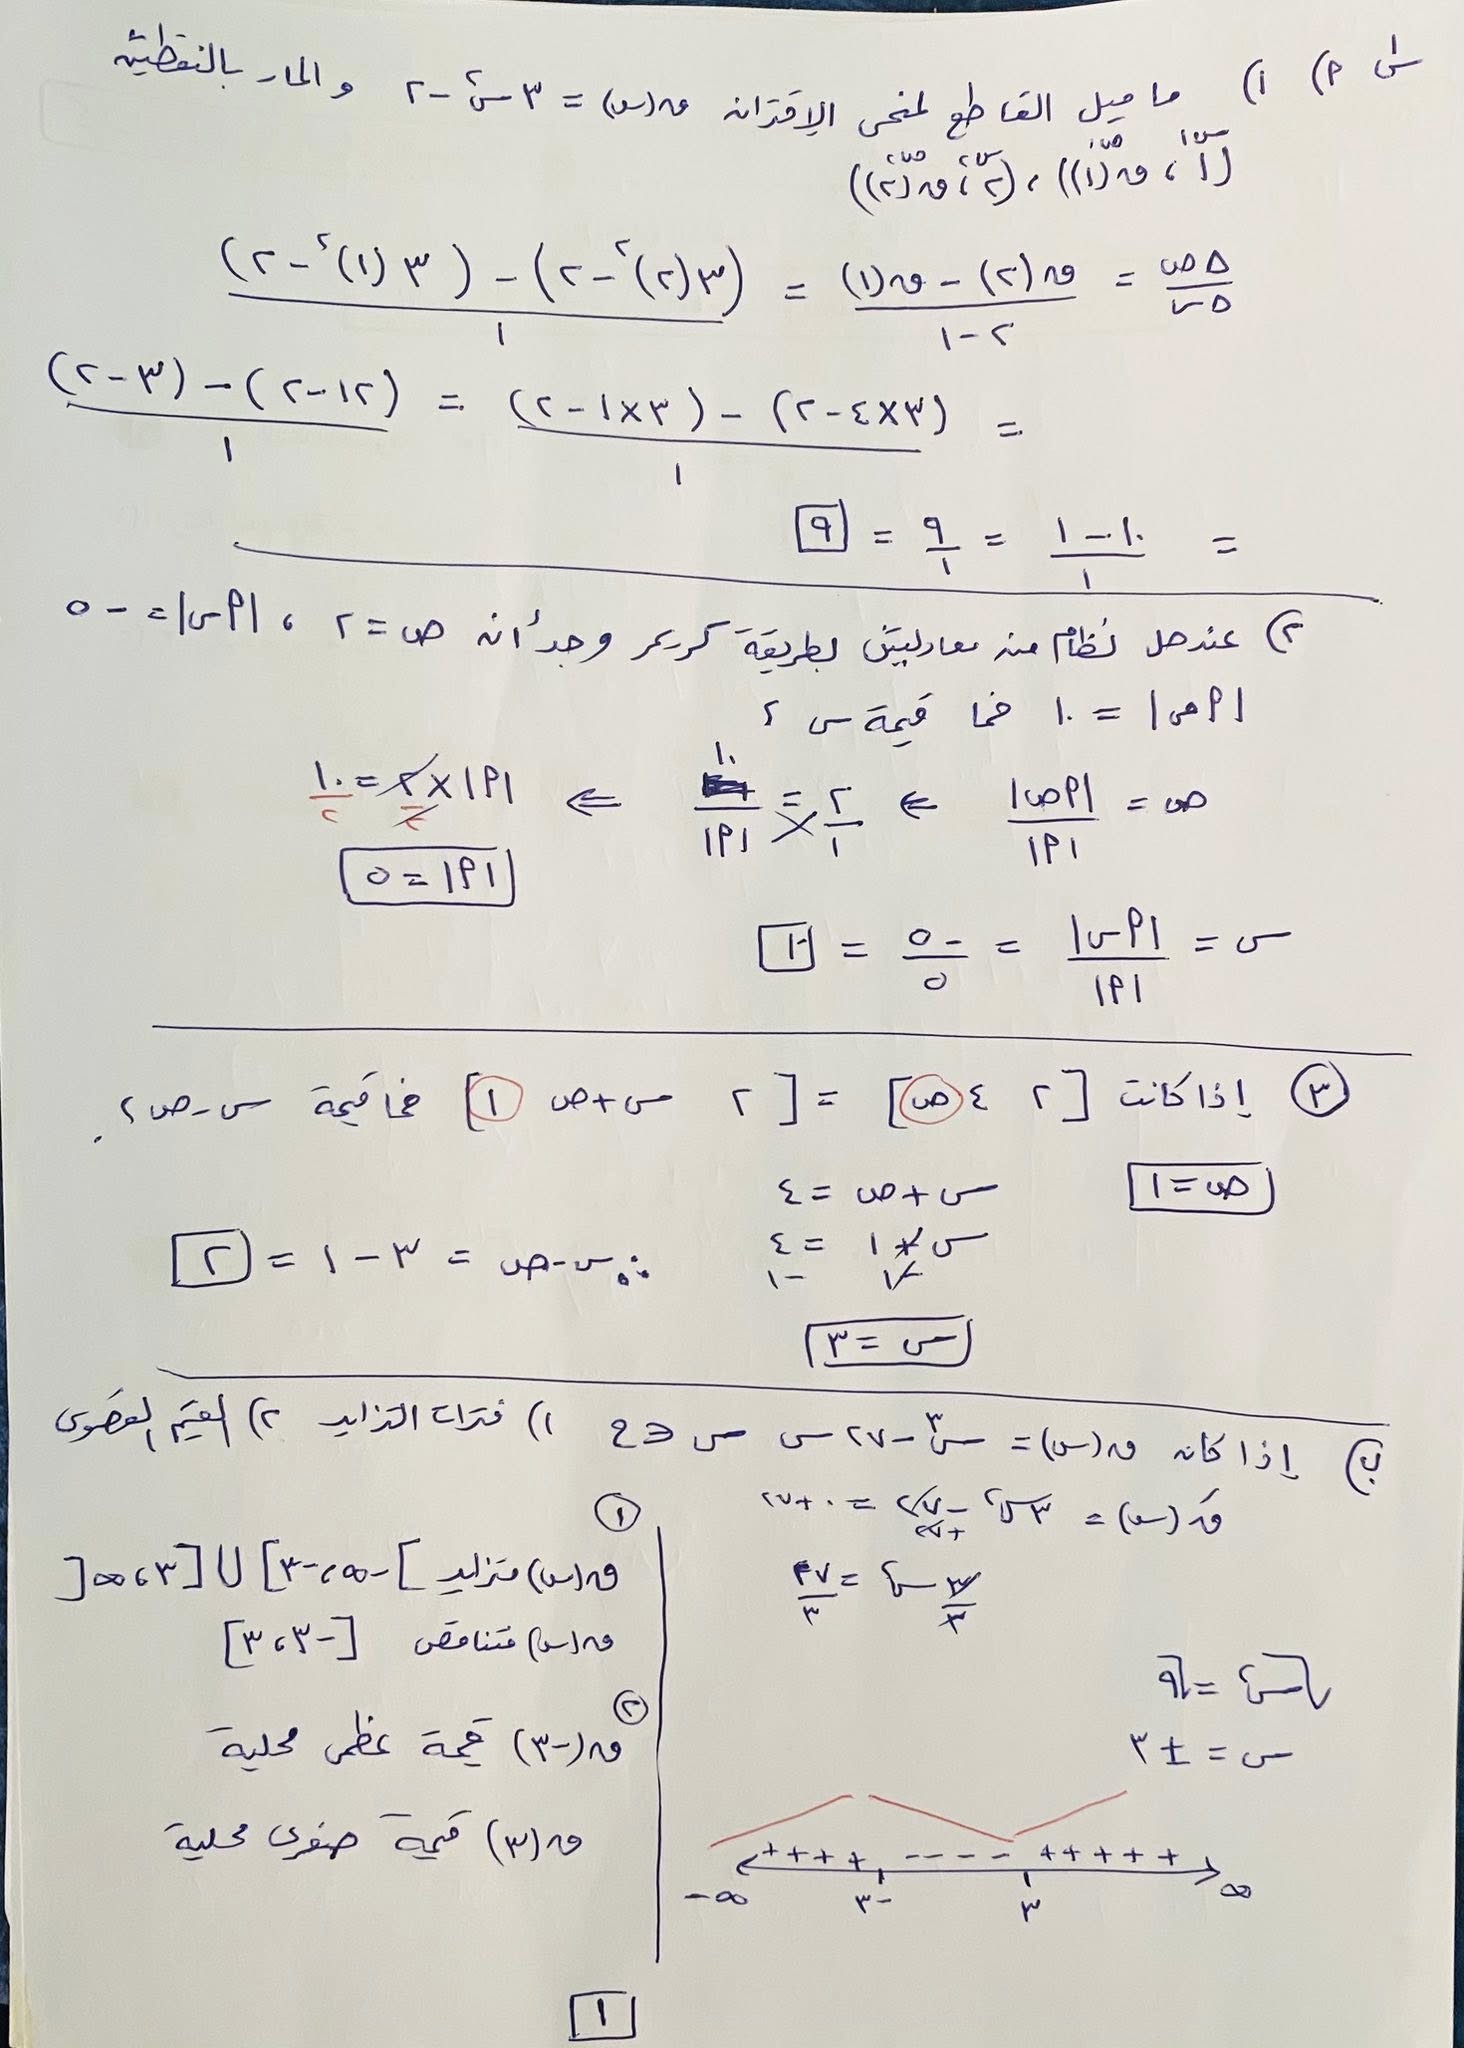 س١ أ) ١) ما ميل القاطع لمنحنى الاقتران ق(س) = ٣س٢ - ٢ والمار بالنقطتين
(١ ، ق(١)) ، (٢ ، ق(٢))
س١ ص١ س٢ ص٢
Δص/Δس = (ق(٢) - ق(١))/(٢ - ١) = ((٣(٢)٢ - ٢) - (٣(١)٢ - ٢))/١
= ((٣×٤ - ٢) - (٣×١ - ٢))/١ = ((١٢ - ٢) - (٣ - ٢))/١
= (١٠ - ١)/١ = ٩/١ = ٩
٢) عند حل نظام من معادلتين بطريقة كريمر وجد أن ص = ٢ ، |أس| = -٥
|أص| = ١٠ فما قيمة س ؟
ص = |أص|/|أ| ⇐ ٢/١ = ١٠/|أ| ⇐ |أ|×٢/٢ = ١٠/٢
|أ| = ٥
س = |أس|/|أ| = -٥/٥ = -١
٣ إذا كانت [٢ ٤ ص] = [٢ س+ص ١] فما قيمة س-ص ؟
ص = ١
س + ص = ٤
س + ١ = ٤
-١ -١
س = ٣
∴ س - ص = ٣ - ١ = ٢
ب) إذا كان ق(س) = س٣ - ٢٧س س ∈ ح ١) فترات التزايد ٢) القيم القصوى
قَ(س) = ٣س٢ - ٢٧ = ٠ + ٢٧
+٢٧
٣س٢/٣ = ٢٧/٣
√س٢ = √٩
س = ±٣
++++ ---- +++++
-∞ -٣ ٣ ∞
١
ق(س) متزايد ]-∞، -٣] ∪ [٣، ∞[
ق(س) متناقص [-٣، ٣]
٢
ق(-٣) قيمة عظمى محلية
ق(٣) قيمة صغرى محلية
١